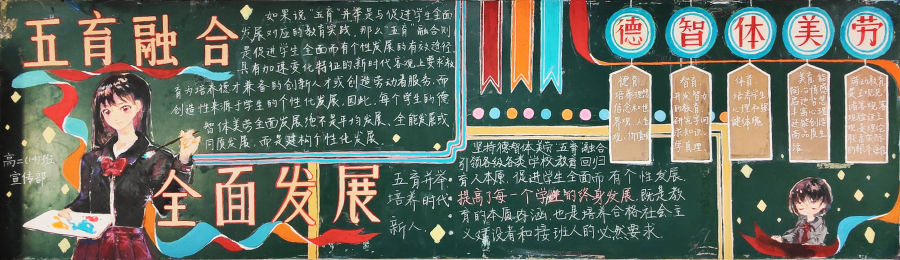 五育融合
如果说"五育"并举是与促进学生全面
发展对应的教育实践,那么"五育"融合则
是促进学生全面而有个性发展的有效途径.
具有加速变化特征的新时代客观上要求教
育为培养德才兼备的创新人才或创造劳动者服务,而
创造性来源于学生的个性化发展.因此.每个学生的德
智体美劳全面发展绝不是平均发展、全能发展或
同质发展.而是建构个性化发展.
高二(14)班
宣传部
全面发展
五育并举
培养时代
新人
坚持德智体美劳五育融合
引领各级各类学校教育回归
育人本原,促进学生全面而有个性发展.
提高了每一个学生的终身发展.既是教
育的本质内涵,也是培养合格社会主
义建设者和接班人的必然要求.
德 智 体 美 劳
德育
培养理想
信念和世
界观、人生
观、价值观
智育
开发智力
和教育,
研究学问
求知识、
学真理.
体育
培养学生
心理和保
健体魄.
美育